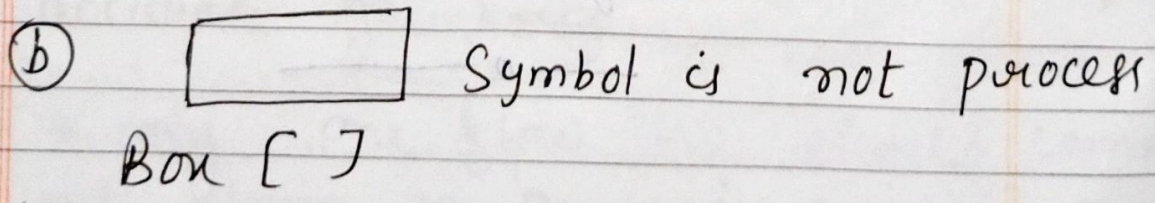 b Symbol is not process
Box [ ]